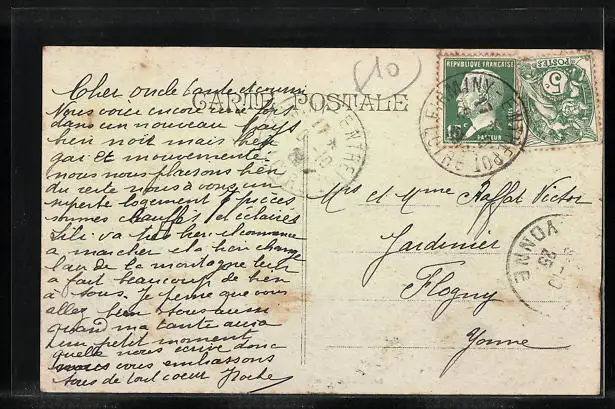 Cher oncle tante et cousin
Nous voici encore une fois
dans un nouveau pays
bien noir mais bien
gai et mouvementé
nous nous plaisons bien
du reste nous avons un
superbe logement 5 pièces
sommes chauffés et éclairés
Lili va très bien commence
à marcher et a bien changé
l'air de la montagne lui
a fait beaucoup de bien
à tous. Je pense que vous
allez bien tous aussi
quand ma tante aura
un petit moment
quelle nous écrive donc
vous embrassons
tous de tout cœur
CARTE POSTALE
610
REPUBLIQUE FRANÇAISE
15
PASTEUR
POSTES
5
ENTREPOT
Mrs et Mme Raffat Victor
Jardinier
Flogny
Yonne
YONNE
25